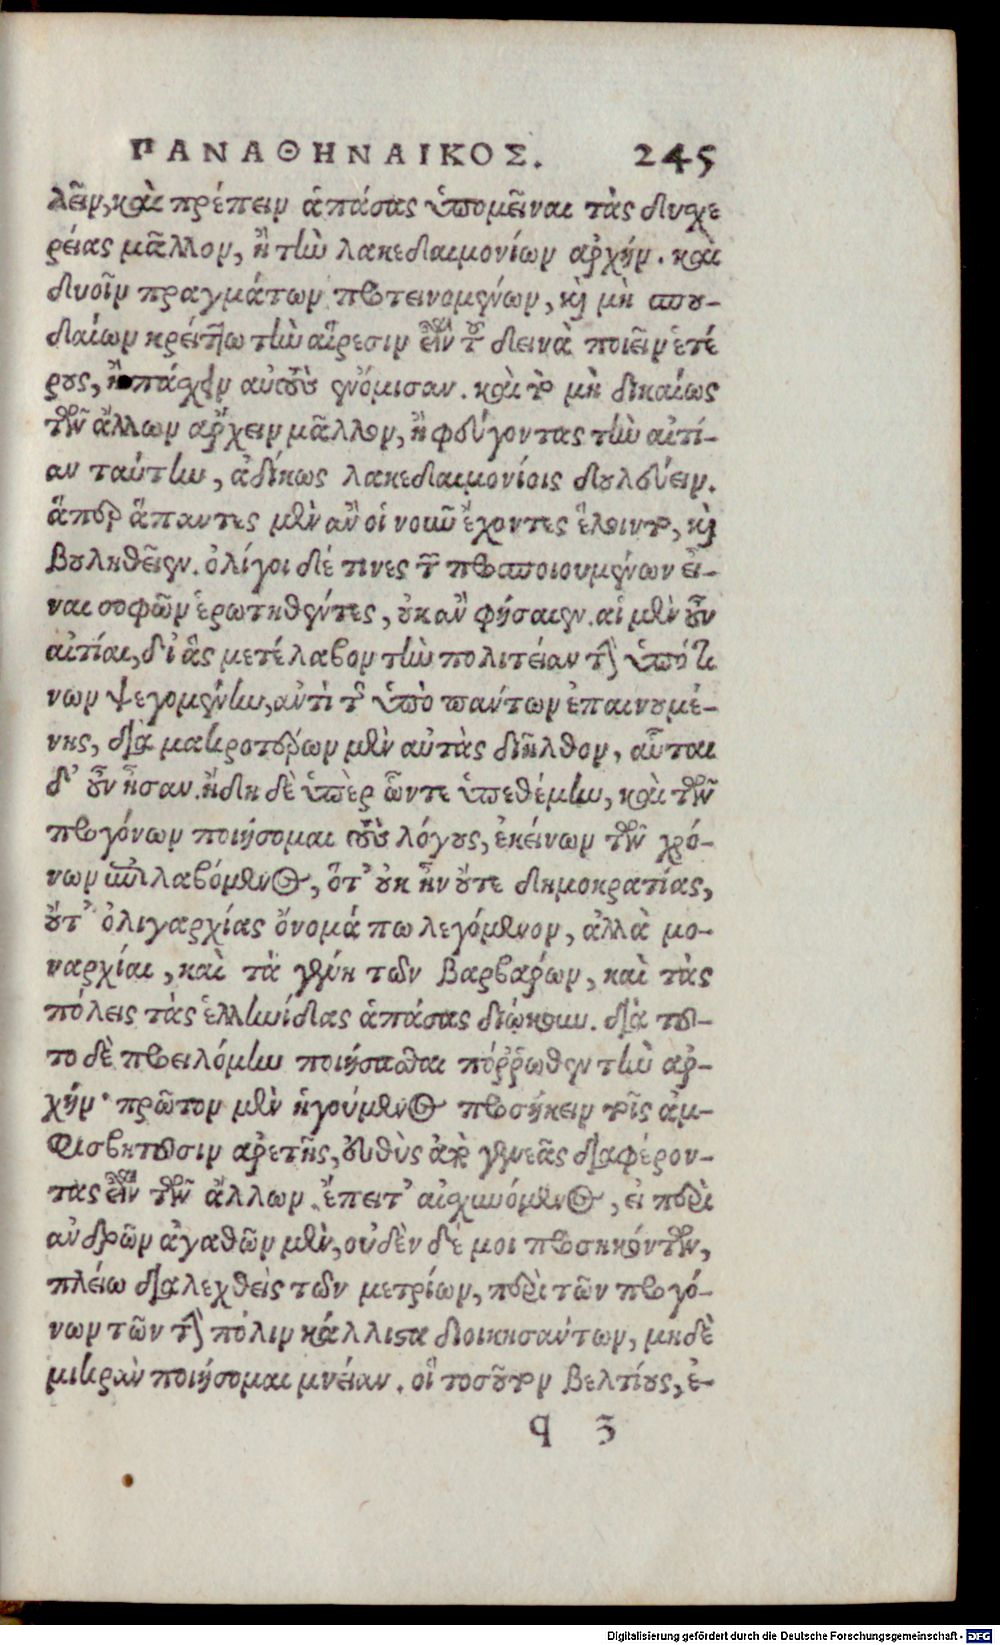 ΠΑΝΑΘΗΝΑΙΚΟΣ. 245
λεῖν, καὶ πρέπειν ἁπάσας ὑπομεῖναι τὰς δυχε
ρείας μᾶλλον, ἢ τὴν λακεδαιμονίων ἀρχήν. καὶ
δυοῖν πραγμάτων προτεινομένων, καὶ μὴ σπου-
δαίων κρείττω τὴν αἵρεσιν εἶναι τοῦ δεινὰ ποιεῖν ἑτέ
ρους, ἢ πάσχειν αὐτοὺς ἐνόμισαν. καὶ τὸ μὴ δικαίως
τῶν ἄλλων ἄρχειν μᾶλλον, ἢ φεύγοντας τὴν αἰτί-
αν ταύτην, ἀδίκως λακεδαιμονίοις δουλεύειν.
ἅπερ ἅπαντες μὲν ἂν οἱ νοῦν ἔχοντες ἕλοιντο, καὶ
βουληθεῖεν. ὀλίγοι δέ τινες τῶν προσποιουμένων εἶ-
ναι σοφῶν ἐρωτηθέντες, οὐκ ἂν φήσαιεν. αἱ μὲν οὖν
αἰτίαι, δι' ἃς μετέλαβον τὴν πολιτείαν τὴν ὑπό τι
νων ψεγομένην, ἀντὶ τῆς ὑπὸ πάντων ἐπαινουμέ-
νης, διὰ μακροτέρων μὲν αὐτὰς διῆλθον, αὗται
δ' οὖν ἦσαν. ἤδη δὲ ὑπὲρ ὧν τε ὑπεθέμην, καὶ τῶν
προγόνων ποιήσομαι τοὺς λόγους, ἐκείνων τῶν χρό-
νων ἐπιλαβόμενος, ὅτ' οὐκ ἦν οὔτε δημοκρατίας,
οὔτ' ὀλιγαρχίας ὄνομά πω λεγόμενον, ἀλλὰ μο-
ναρχίαι, καὶ τὰ γένη τῶν βαρβάρων, καὶ τὰς
πόλεις τὰς ἑλληνίδας ἁπάσας διῴκουν. διὰ τοῦ-
το δὲ προειλόμην ποιήσασθαι πόρρωθεν τὴν ἀρ-
χήν· πρῶτον μὲν ἡγούμενος προσήκειν τοῖς ἀμ-
φισβητοῦσιν ἀρετῆς, εὐθὺς ἀπὸ γενεᾶς διαφέρον-
τας εἶναι τῶν ἄλλων. ἔπειτ' αἰσχυνόμενος, εἰ περὶ
ἀνδρῶν ἀγαθῶν μὲν, οὐδὲν δέ μοι προσηκόντων,
πλείω διαλεχθεὶς τῶν μετρίων, περὶ τῶν προγό-
νων τῶν τὴν πόλιν κάλλιστα διοικησάντων, μηδὲ
μικρὰν ποιήσομαι μνείαν. οἳ τοσοῦτον βελτίους, ἐ-
q 3
Digitalisierung gefördert durch die Deutsche Forschungsgemeinschaft - DFG